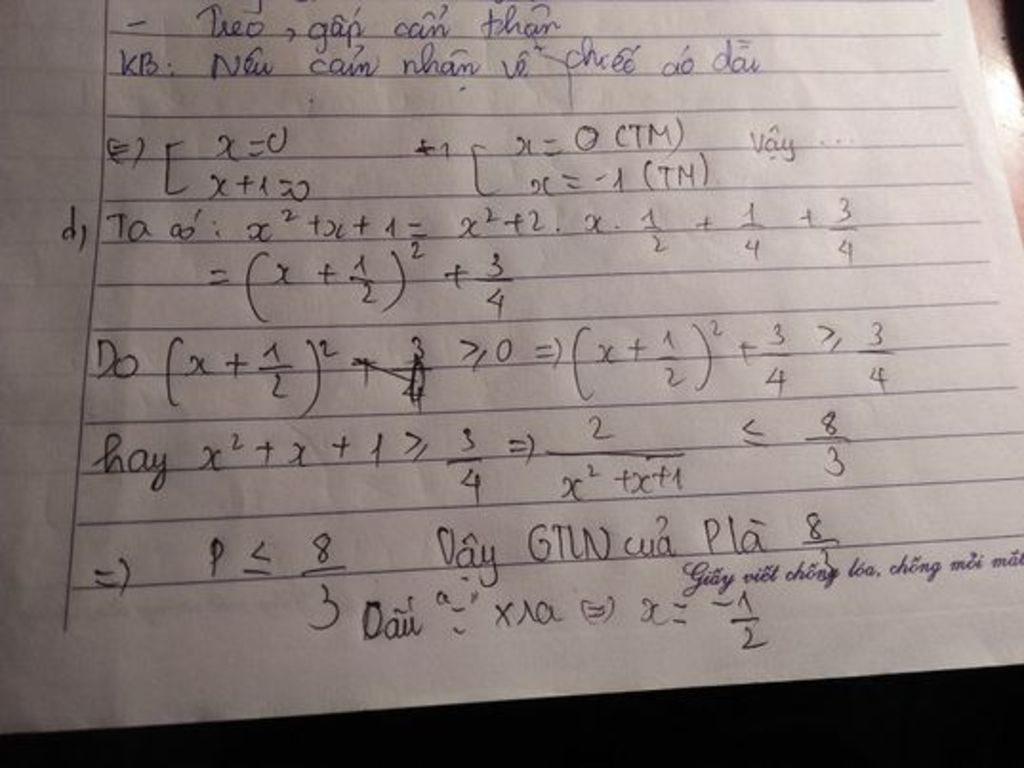 - Treo, gấp cẩn thận
KB: Nêu cảm nhận về chiếc áo dài
⇔ [ x=0 [ x = 0 (TM) Vậy ...
x+1=0 x = -1 (TM)
d, Ta có: x² + x + 1 = x² + 2. x. 1/2 + 1/4 + 3/4
= (x + 1/2)² + 3/4
Do (x + 1/2)² ≥ 0 ⇒ (x + 1/2)² + 3/4 ≥ 3/4
hay x² + x + 1 ≥ 3/4 ⇒ 2/(x² + x + 1) ≤ 8/3
⇒ P ≤ 8/3 Vậy GTLN của P là 8/3
Giấy viết chống lóa, chống mỏi mắt
Dấu "=" xra ⇔ x = -1/2